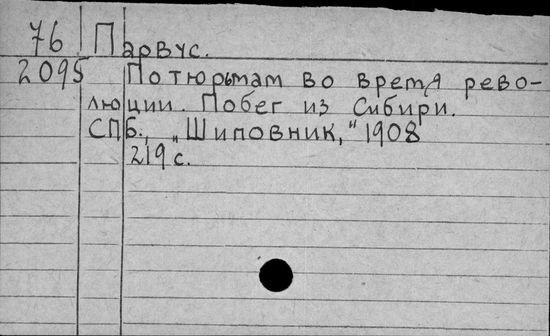 76 Парвус.
2095 По тюрьмам во время рево-
люции. Побег из Сибири.
СПБ., „Шиповник,“ 1908
219 с.